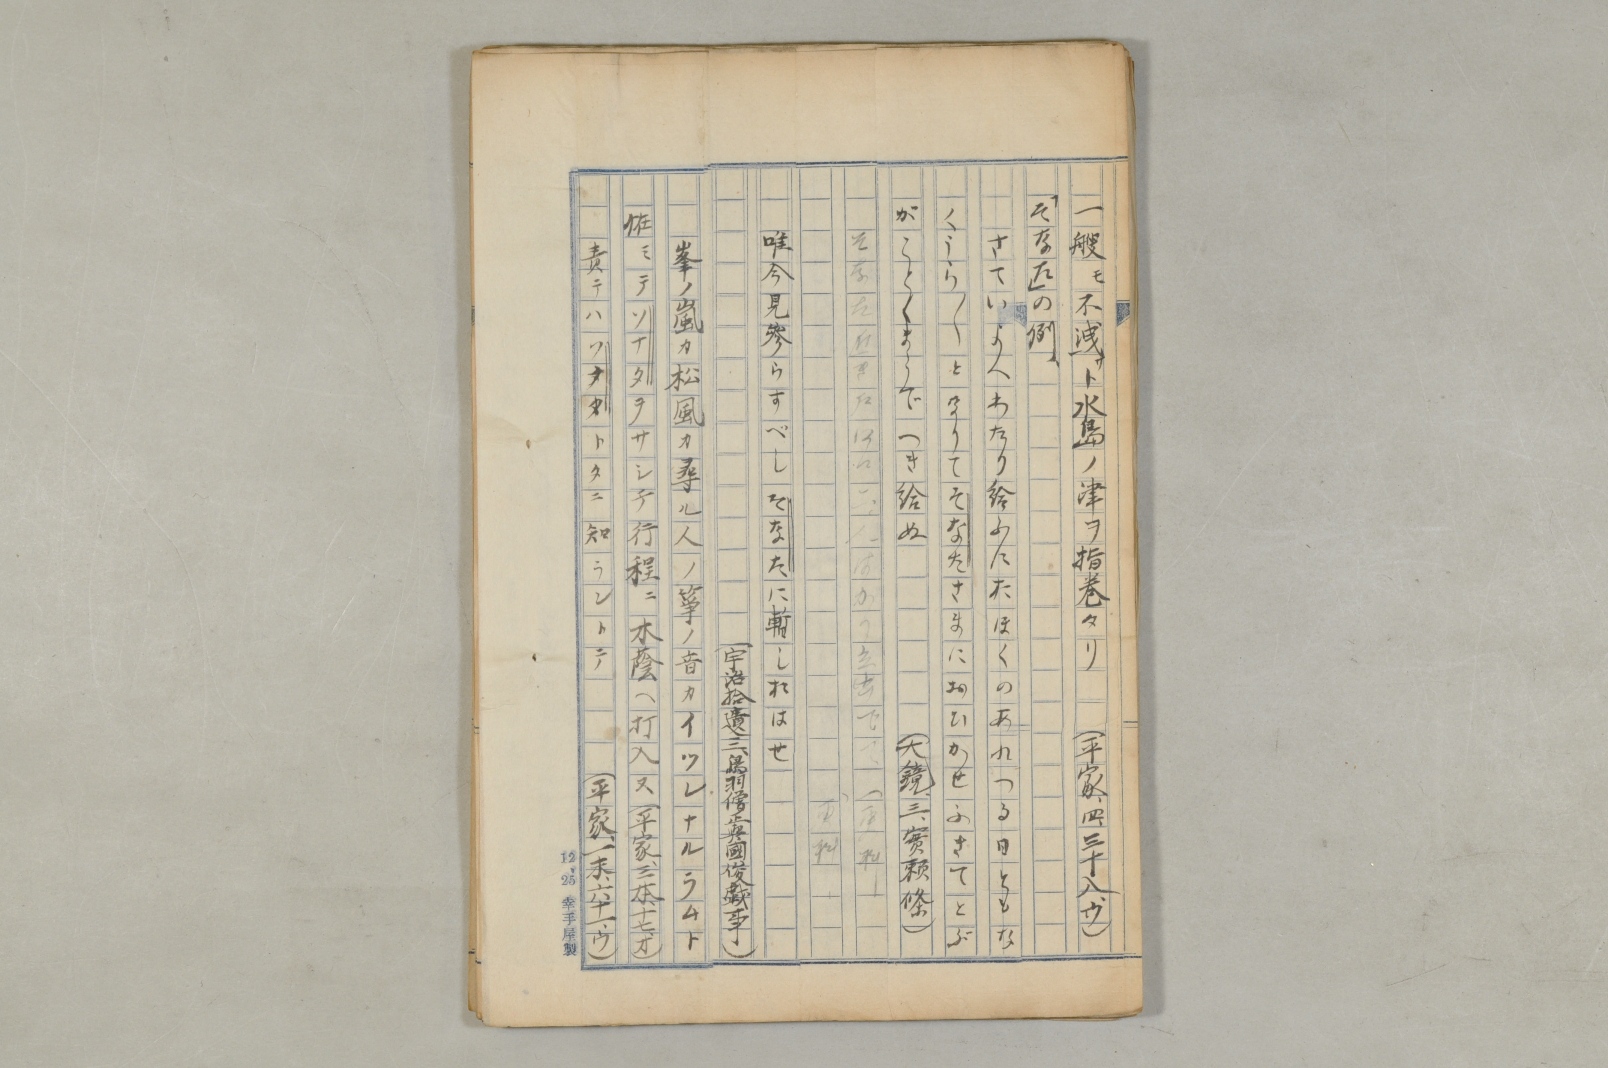 一艘モ不洩サト水島ノ津ヲ指巻タリ（平家、四、三十八、ヴ）
「そなた」の例、
さていよへわたり給ふにおほくのあれつる日ともな
くうら〳〵となりてそなたさまにおひかせふきてとぶ
がことくまうでつき給ぬ（大鏡、三、実頼條）
唯今見参らすべしそなたに暫しおはせ
（宇治拾遺、三、鳥羽僧正与国俊戯事）
峯ノ嵐カ松風カ尋ル人ノ箏ノ音カイツレナルラムト
恠ミテソナタヲサシテ行程ニ木蔭ヘ打入ヌ（平家、三本、十七、オ）
責テハソナタトタニ知ラントテ（平家、一末、六十一、ウ）
12,25 幸手屋製